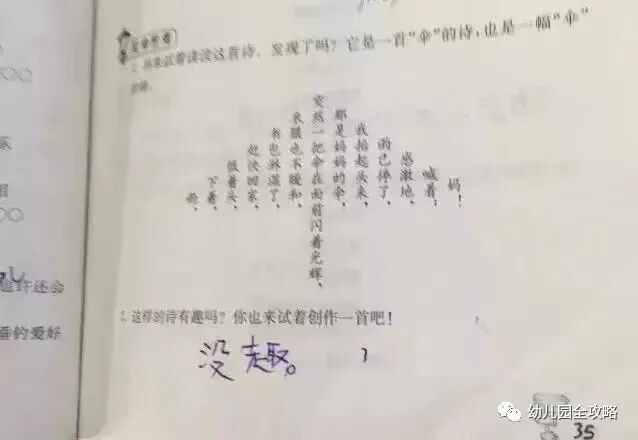 来试着读读这首诗，发现了吗？它是一首“伞”的诗，也是一幅“伞”
雨，
下着，
低着头，
赶快回家，
书包淋湿了，
衣服也不暖和，
突然一把伞在面前闪着光辉，
那是妈妈的伞，
我抬起头来，
雨已停了，
感激地，
喊着：
妈！
2. 这样的诗有趣吗？你也来试着创作一首吧！
没趣。
许还会
垂钓爱好
幼儿园全攻略
35